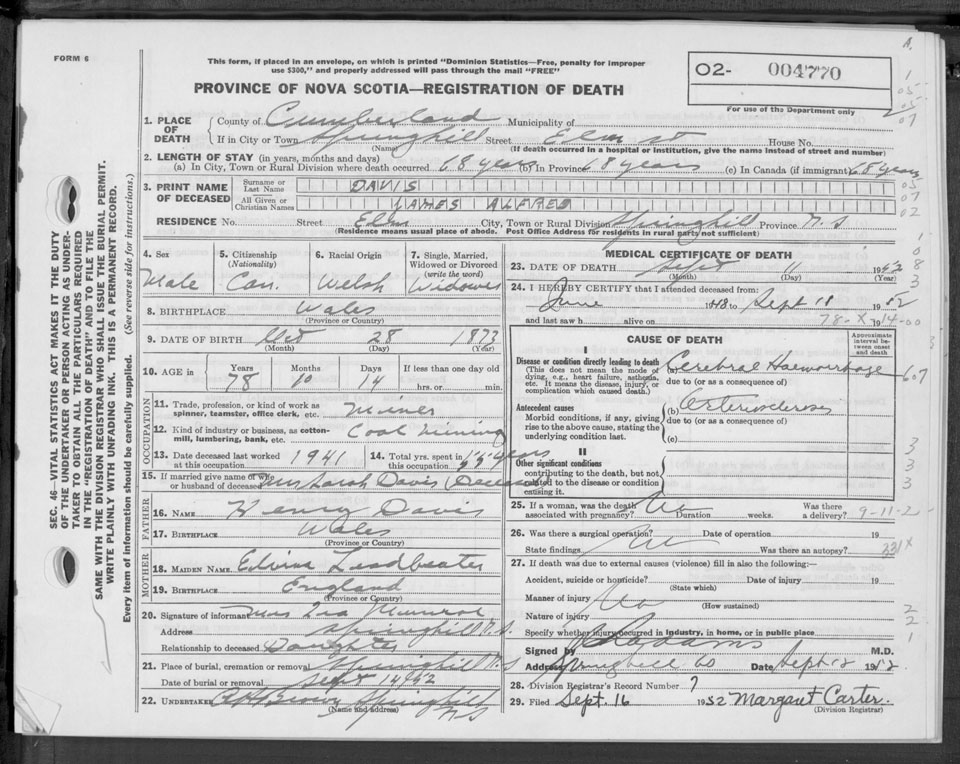 FORM 6
This form, if placed in an envelope, on which is printed "Dominion Statistics—Free, penalty for improper
use $300," and properly addressed will pass through the mail "FREE"
PROVINCE OF NOVA SCOTIA—REGISTRATION OF DEATH
02- 004770
For use of the Department only
SEC. 46 VITAL STATISTICS ACT MAKES IT THE DUTY
OF THE UNDERTAKER OR PERSON ACTING AS UNDER-
TAKER TO OBTAIN ALL THE PARTICULARS REQUIRED
IN THE "REGISTRATION OF DEATH" AND TO FILE THE
SAME WITH THE DIVISION REGISTRAR WHO SHALL ISSUE THE BURIAL PERMIT.
WRITE PLAINLY WITH UNFADING INK. THIS IS A PERMANENT RECORD.
Every item of information should be carefully supplied. (See reverse side for instructions.)
1. PLACE OF DEATH
County of Cumberland Municipality of
If in City or Town Springhill Street Elm St House No.
(Name) (If death occurred in a hospital or institution, give the name instead of street and number)
2. LENGTH OF STAY (in years, months and days)
(a) In City, Town or Rural Division where death occurred 68 years (b) In Province 68 years (c) In Canada (if immigrant) 68 years
3. PRINT NAME OF DECEASED
Surname or Last Name DAVIS
All Given or Christian Names JAMES ALFRED
RESIDENCE No. Street Elm City, Town or Rural Division Springhill Province N.S
(Residence means usual place of abode. Post Office Address for residents in rural parts not sufficient)
4. Sex Male
5. Citizenship (Nationality) Can.
6. Racial Origin Welsh
7. Single, Married, Widowed or Divorced (write the word) Widower
8. BIRTHPLACE Wales
(Province or Country)
9. DATE OF BIRTH Oct 28 1873
(Month) (Day) (Year)
10. AGE in Years 78 Months 10 Days 14 If less than one day old
hrs. or min.
OCCUPATION
11. Trade, profession, or kind of work as spinner, teamster, office clerk, etc. Miner
12. Kind of industry or business, as cotton-mill, lumbering, bank, etc. Coal Mining
13. Date deceased last worked at this occupation 1941
14. Total yrs. spent in this occupation 55 years
15. If married give name of wife or husband of deceased Mrs Sarah Davis (Deceased)
FATHER
16. NAME Henry Davis
17. BIRTHPLACE Wales
(Province or Country)
MOTHER
18. MAIDEN NAME Leadbeater
19. BIRTHPLACE England
(Province or Country)
20. Signature of informant Mrs Ira Munroe
Address Springhill N.S.
Relationship to deceased Daughter
21. Place of burial, cremation or removal Springhill N.S
Date of burial or removal Sept 14/52
22. UNDERTAKER Brown Springhill
N S
(Name and address)
MEDICAL CERTIFICATE OF DEATH
23. DATE OF DEATH Sept 11 1952
(Month) (Day) (Year)
24. I HEREBY CERTIFY that I attended deceased from:
June 1948 to Sept 11 1952
and last saw h alive on 19
78-X-14-00
CAUSE OF DEATH
Approximate interval between onset and death
I
Disease or condition directly leading to death
(This does not mean the mode of dying, e.g., heart failure, asthenia, etc. It means the disease, injury, or complication which caused death.)
Cerebral Haemorrhage
due to (or as a consequence of)
Antecedent causes
Morbid conditions, if any, giving rise to the above cause, stating the underlying condition last.
(b) Arteriosclerosis
due to (or as a consequence of)
(c)
II
Other significant conditions
contributing to the death, but not related to the disease or condition causing it.
25. If a woman, was the death associated with pregnancy? No Duration weeks. Was there a delivery? 9-11-2
26. Was there a surgical operation? No Date of operation 19
State findings Was there an autopsy? 331X
27. If death was due to external causes (violence) fill in also the following:—
Accident, suicide or homicide? Date of injury 19
(State which)
Manner of injury No
(How sustained)
Nature of injury
Specify whether injury occurred in industry, in home, or in public place
Signed by Adams M.D.
Address Springhill Date Sept 12 1952
28. Division Registrar's Record Number 7
29. Filed Sept. 16 1952 Margaret Carter.
(Division Registrar)